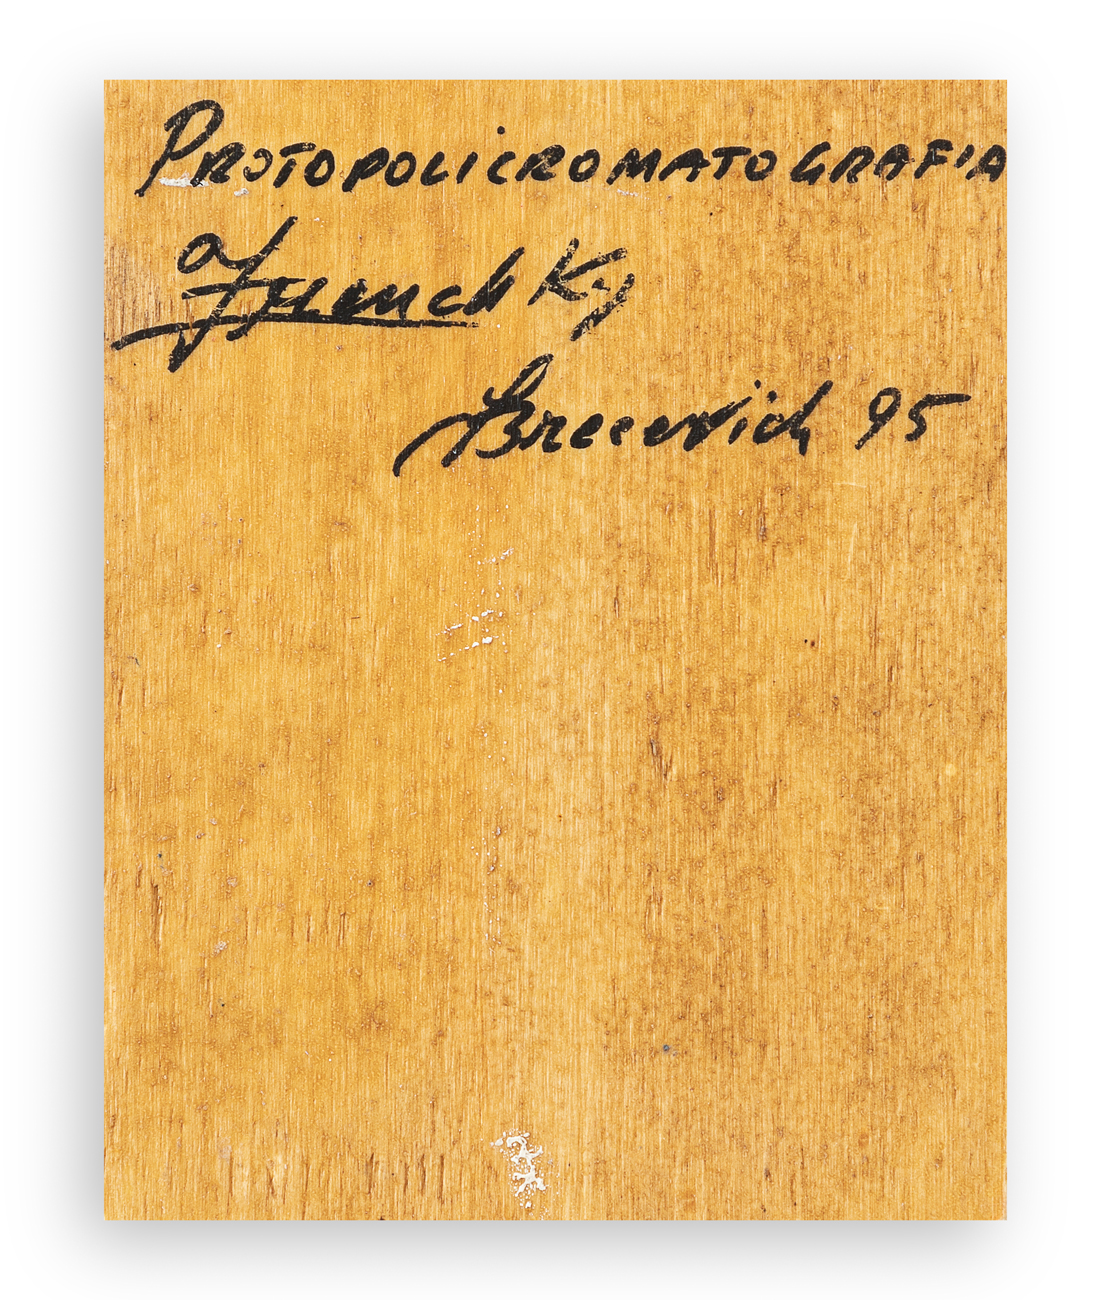 PROTOPOLICROMATOGRAFIA
a French Ky
Brecevich 95